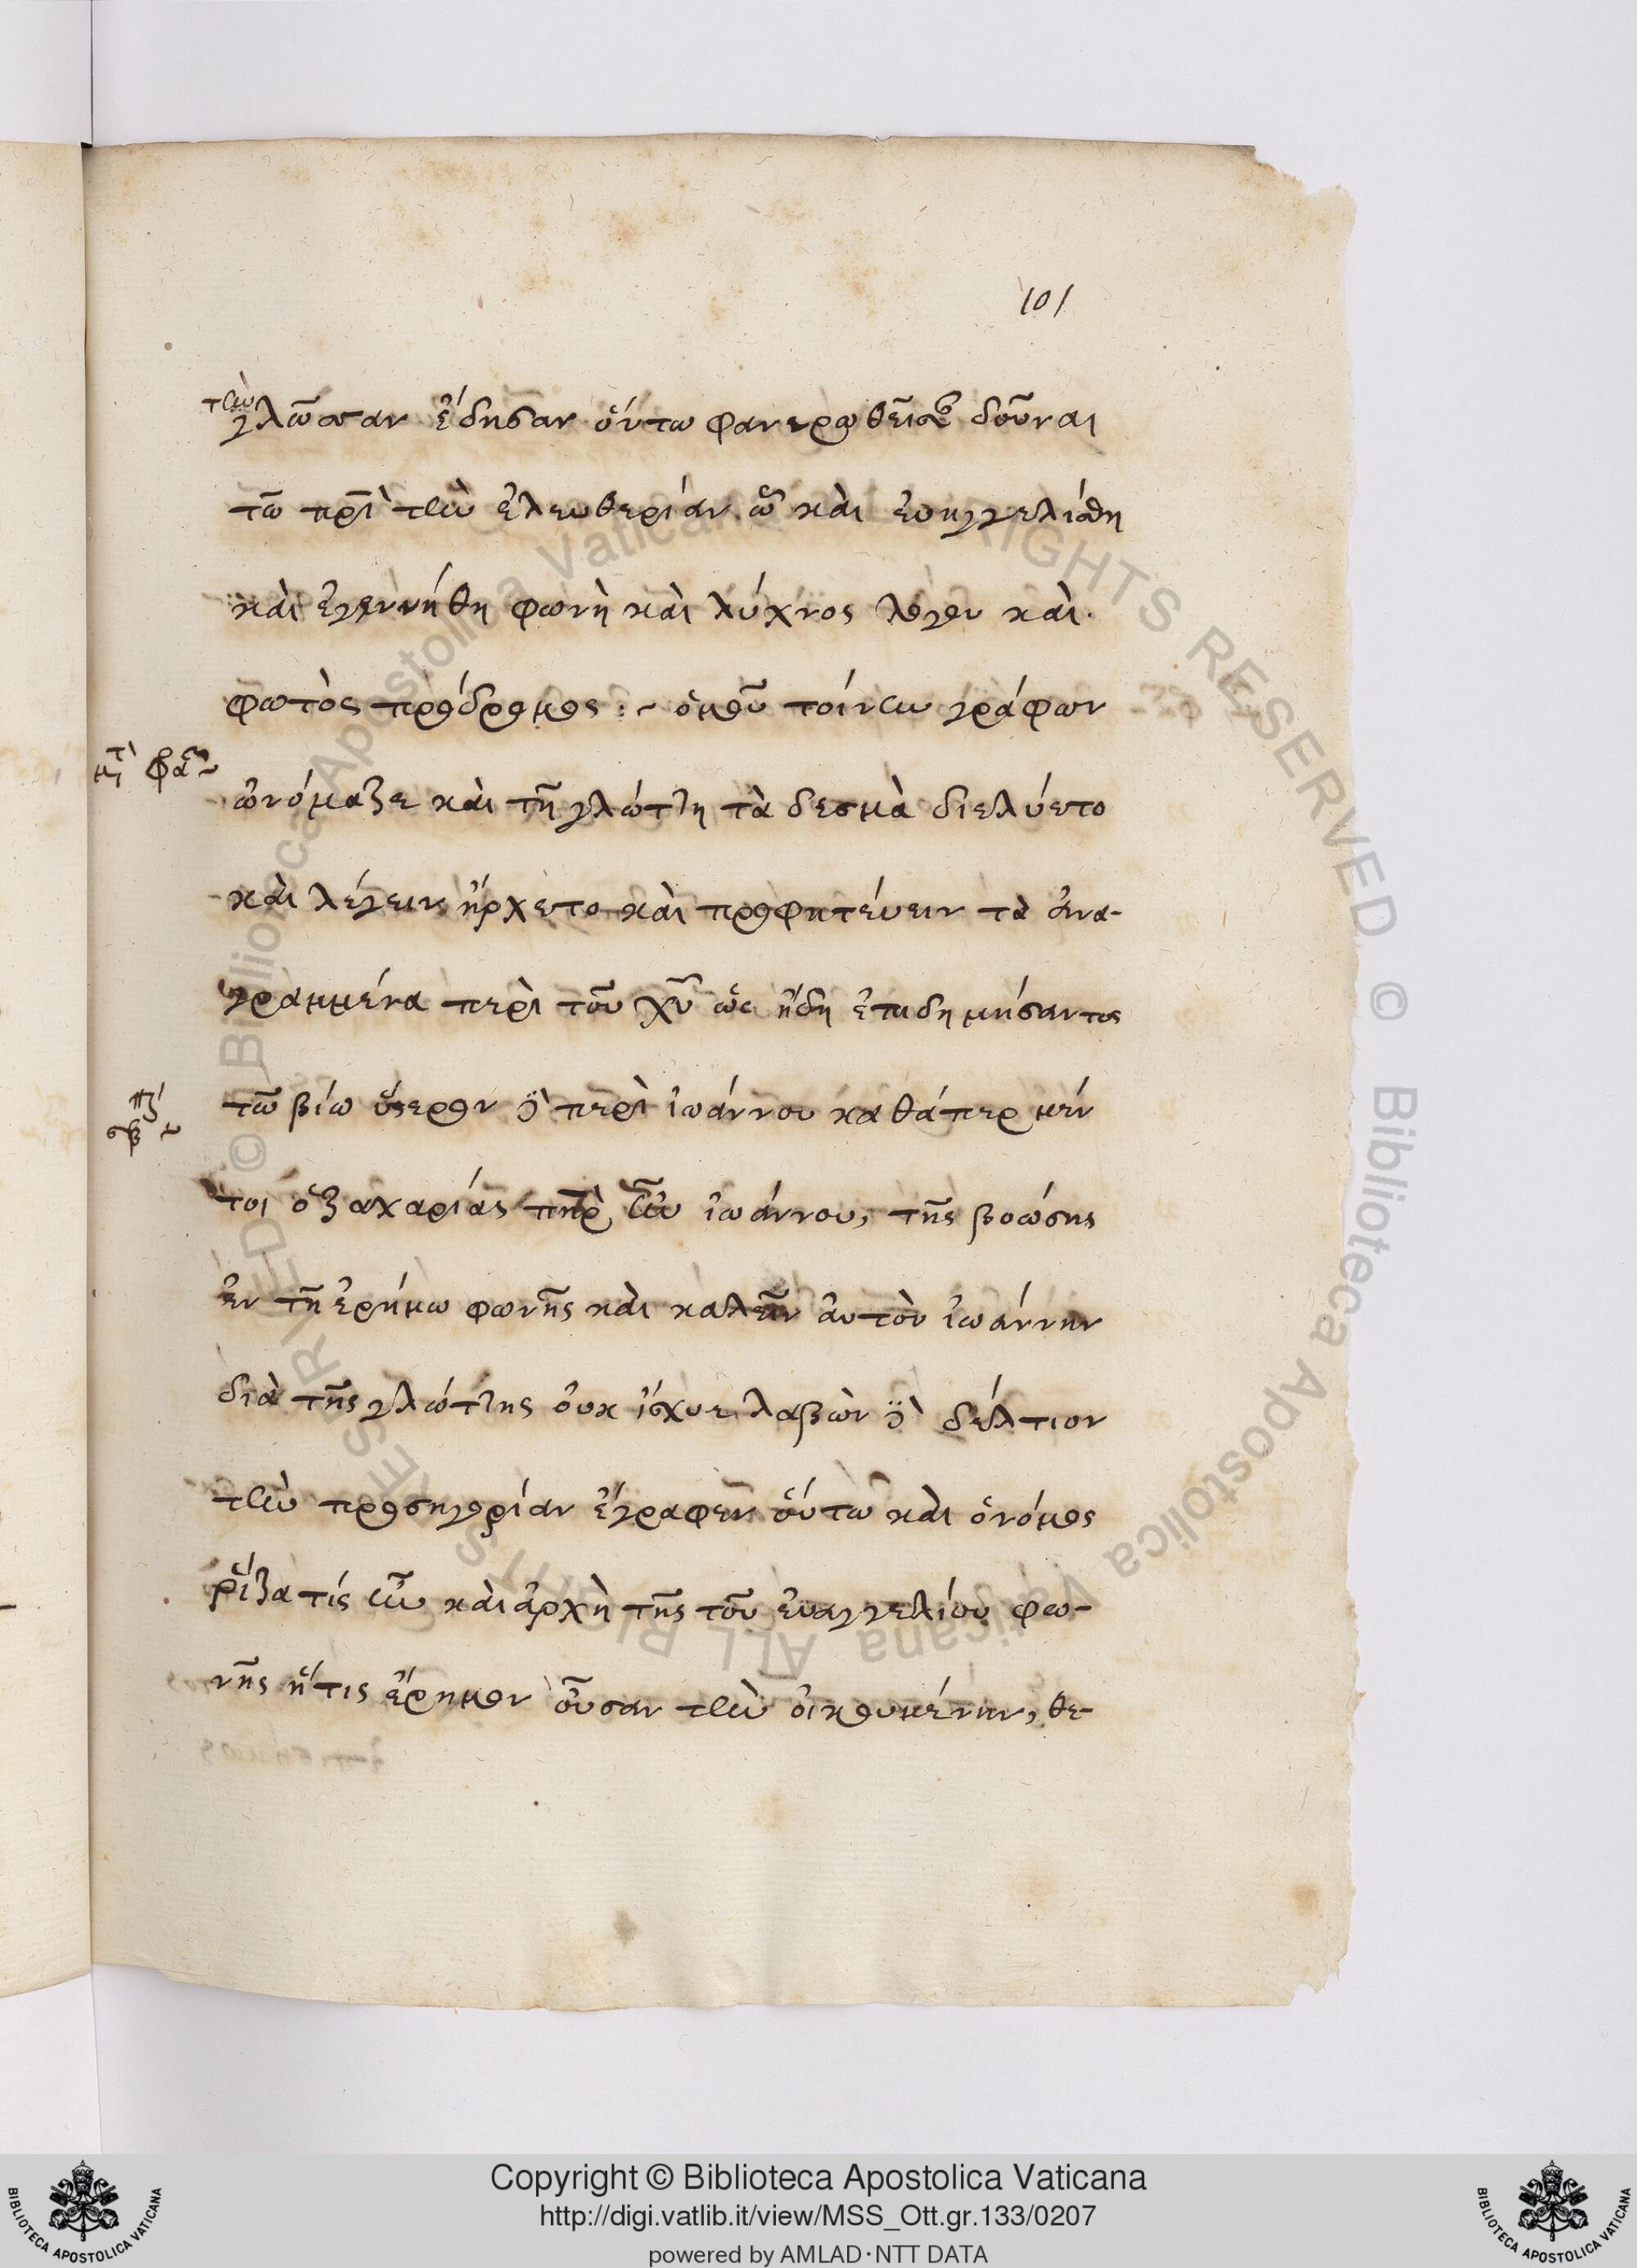 101
τὴν
γλῶσσαν ἔδησαν ὅυτω φανερωθεῖσαι δοῦναι
τῶ πρὶ τὴν ἐλευθερίαν ὧ καὶ ἐυηγγελίσθη
καὶ ἐγεννήθη φωνὴ καὶ λύχνος λόγου καὶ
φωτὸς πρόδρομος :~ ὁμοῦ τοίνυν γράφων
ὠνόμαζε καὶ τῆ γλώττη τὰ δεσμὰ διελύετο
καὶ λέγειν ἤρχετο καὶ προφητέυειν τὰ ἀνα-
γραμμένα περὶ τοῦ χῦ ὡς ἤδη ἐπιδημήσαντος
τῶ βίω ὕστερον δὲ περὶ ἰωάννου καθάπερ μέν
τοι ὁ ζαχαρίας πηρ ὢν ἰωάννου, τῆς βοώσης
ἐν τῆ ἐρήμω φωνῆς καὶ καλεῖν ἀυτὸν ἰωάννην
διὰ τῆς γλώττης ὀυκ ἴσχυε λαβὼν δὲ δέλτιον
τὴν προσηγορίαν ἔγραφεν ὅυτω καὶ ὁ νόμος
ῥίζα τίς ὢν καὶ ἀρχὴ τῆς τοῦ ἐυαγγελίου φω-
νῆς ἥτις ἔρημον ὀῦσαν τὴν ὀικουμένην, θε-
Copyright © Biblioteca Apostolica Vaticana
http://digi.vatlib.it/view/MSS_Ott.gr.133/0207
powered by AMLAD·NTT DATA
BIBLIOTECA APOSTOLICA VATICANA
BIBLIOTECA APOSTOLICA VATICANA